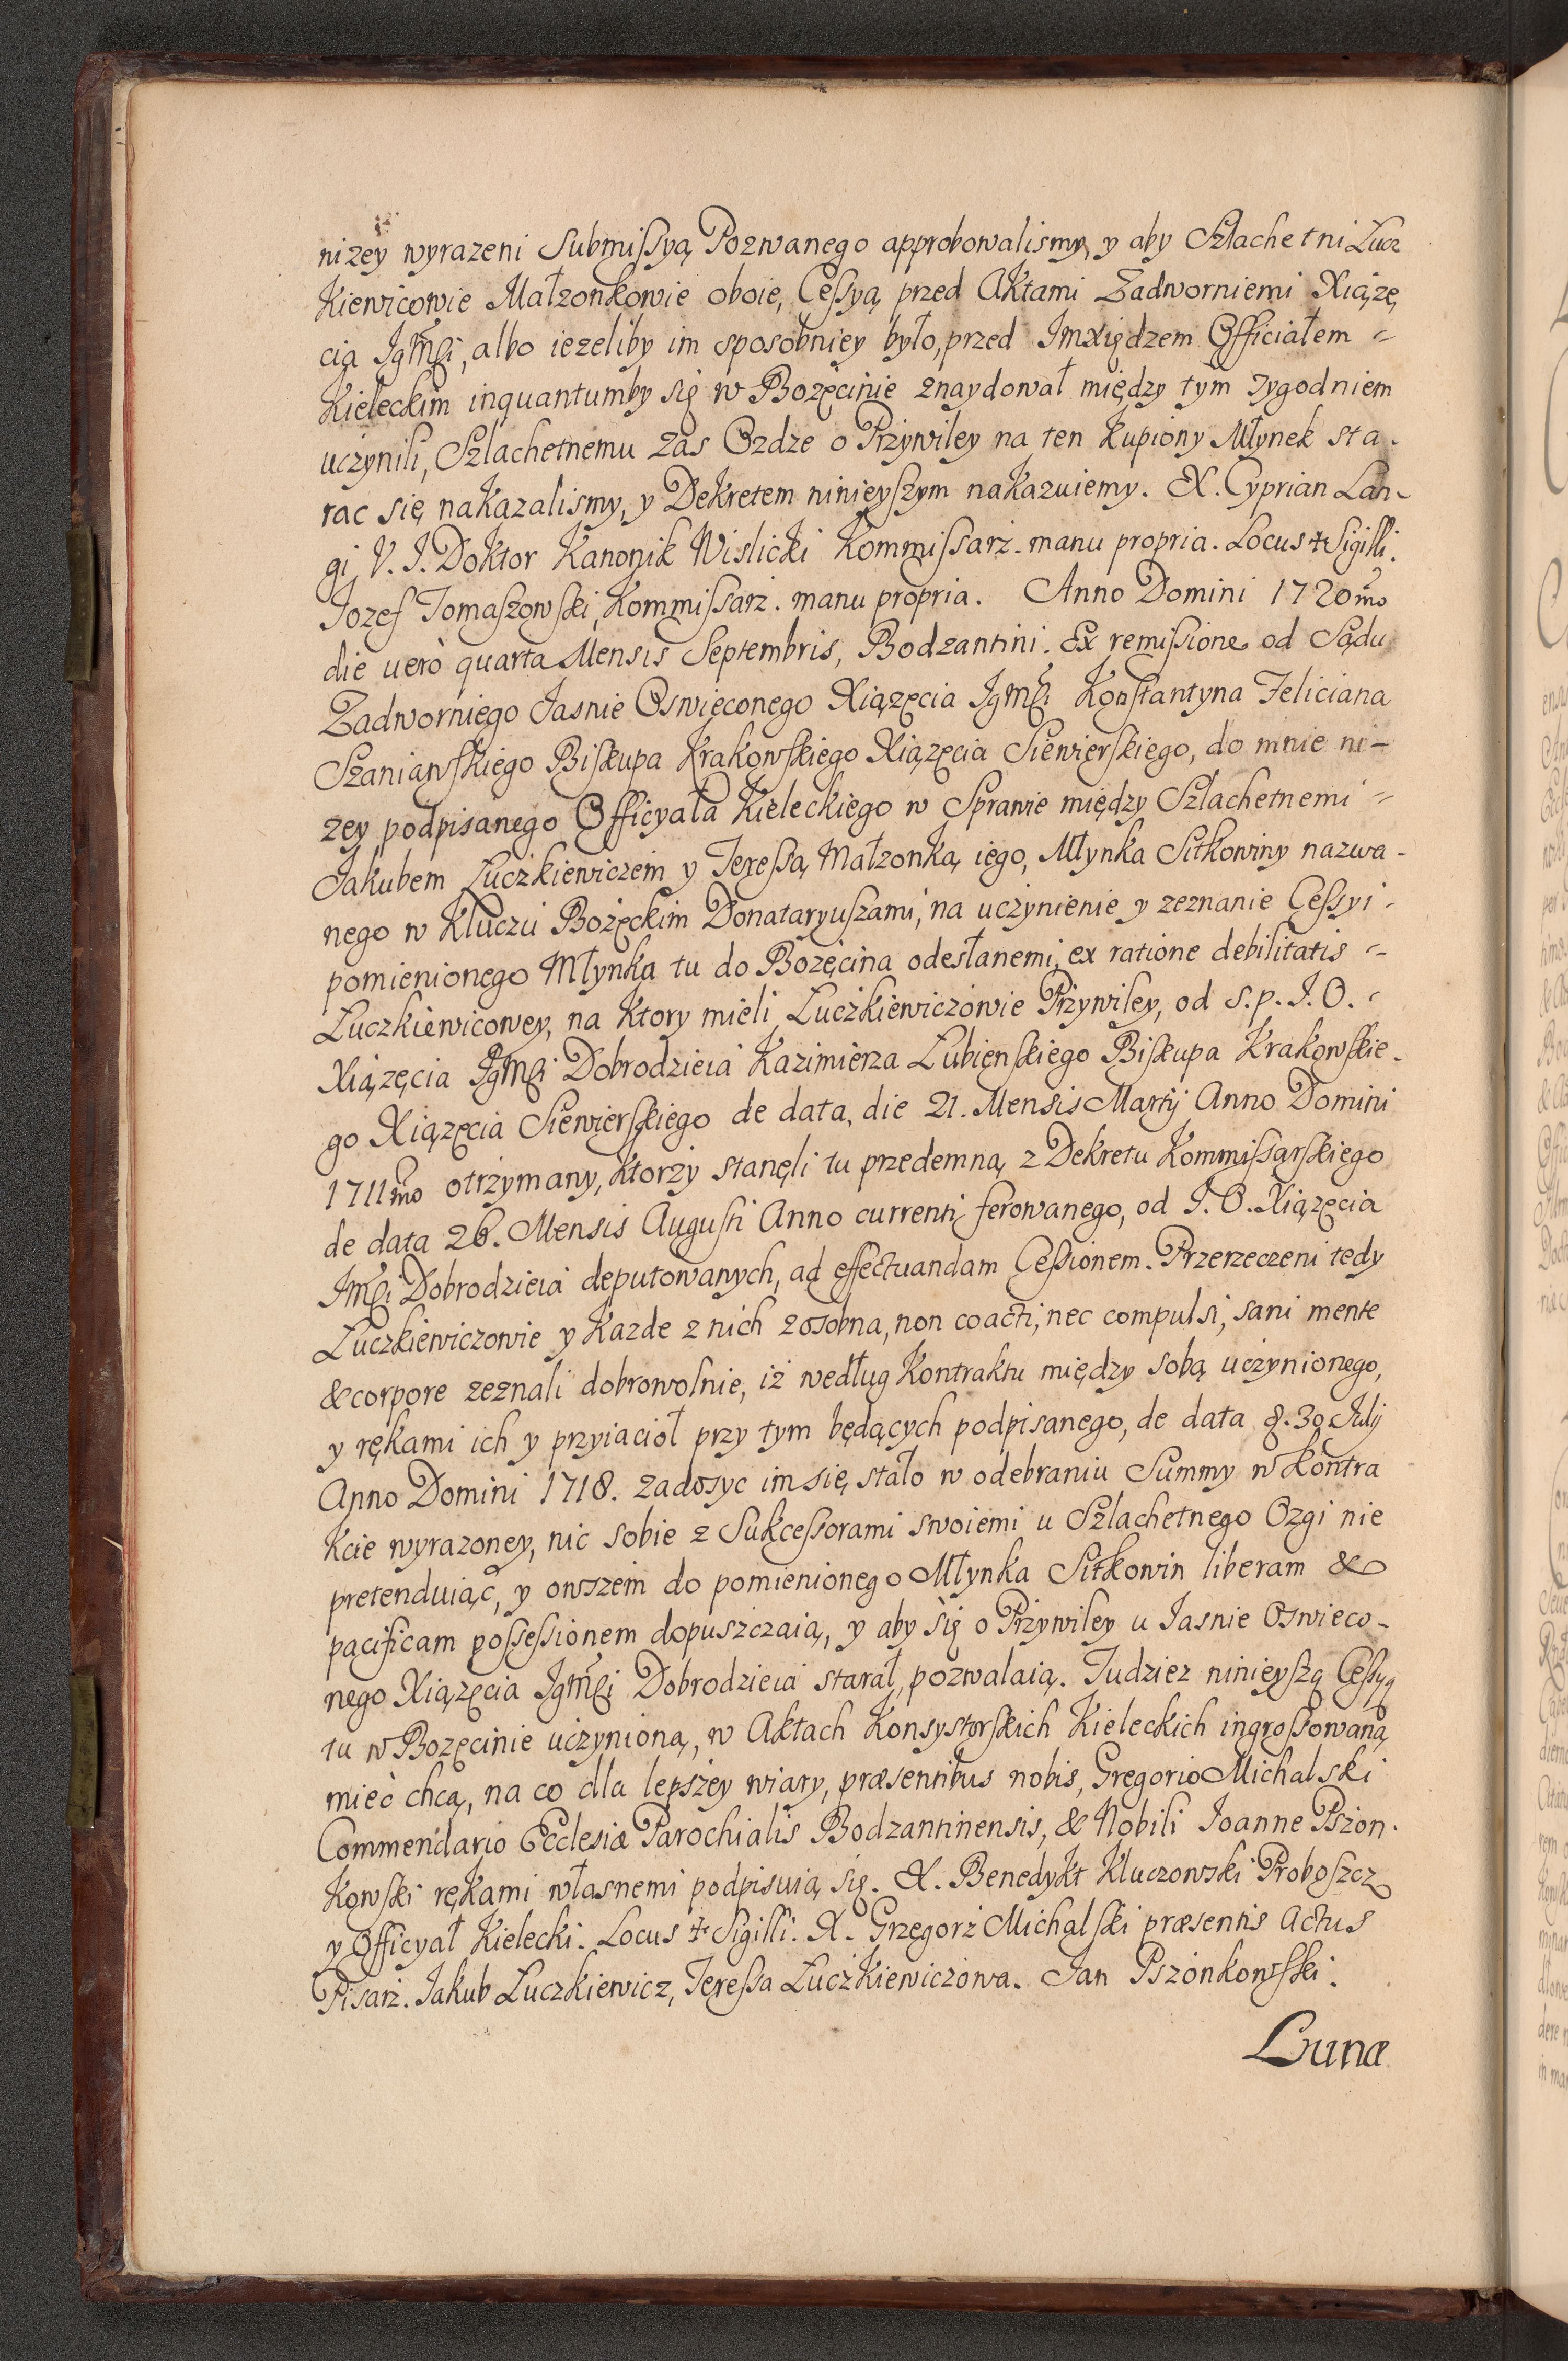 nizey wyrazeni Submissyą Pozwanego approbowalismy, y aby Szlachetni Łucz
Kiewicowie Małzonkowie oboie, Cessyą przed Aktami Zadworniemi Xiązę
cia Jgmści, albo iezeliby im sposobniey było, przed Jmxiędzem Officiałem =
Kieleckim inquantumby się w Bozęcinie znaydował między tym Tygodniem
uczynili, Szlachetnemu zas Ozdze o Przywiley na ten Kupiony Młynek sta-
rac się nakazalismy, y Dekretem ninieyszym nakazuiemy. X. Cyprian Lan-
gi V. I. Doktor Kanonik Wislicki Kommissarz. manu propria. Locus ✝ Sigilli.
Jozef Tomaszowski, Kommissarz. manu propria. Anno Domini 1720mo
die uerò quarta Mensis Septembris, Bodzantini. Ex remissione od Sądu
Zadworniego Jasnie Oswięconego Xiązęcia Jgmści Konstantyna Feliciana
Szaniawskiego Biskupa Krakowskiego Xiązęcia Siewierskiego, do mnie ni-
zey podpisanego Officyała Kieleckiego w Sprawie między Szlachetnemi =
Jakubem Łuczkiewiczem y Teressą Małzonką iego, Młynka Sitkowiny nazwa-
nego w Kluczu Bozęckim Donataryuszami, na uczynienie y zeznanie Cessyi -
pomienionego Młynka tu do Bozęcina odesłanemi, ex ratione debilitatis =
Łuczkiewicowey, na Ktory mieli Łuczkiewiczowie Przywiley, od s. p. J. O. -
Xiązęcia Jgmści Dobrodzieia Kazimierza Łubienskiego Biskupa Krakowskie-
go Xiązęcia Siewierskiego de data, die 21. Mensis Martij Anno Domini
1711mo otrzymany, Ktorzy stanęli tu przedemną z Dekretu Kommissarskiego
de data 26. Mensis Augusti Anno currenti ferowanego, od J. O. Xiązęcia
Jmści Dobrodzieia deputowanych, ad effectuandam Cessionem. Przerzeczeni tedy
Łuczkiewiczowie y Kazde z nich zosobna, non coacti, nec compulsi, sani mente
& corpore zeznali dobrowolnie, iż według Kontraktu między sobą uczynionego,
y rękami ich y przyiacioł przy tym będących podpisanego, de data d. 30 Julij
Anno Domini 1718. zadosyc im się stało w odebraniu Summy w Kontra
Kcie wyrazoney, nic sobie z Sukcessorami swoiemi u Szlachetnego Ozgi nie
pretenduiąc, y owszem do pomienionego Młynka Sitkowin liberam &
pacificam possessionem dopuszczaią, y aby się o Przywiley u Jasnie Oswieco-
nego Xiązęcia Jgmści Dobrodzieia starał, pozwalaią. Tudziez ninieyszą Cessyą
tu w Bozęcinie uczynioną, w Aktach Konsystorskich Kieleckich ingrossowaną
mieć chcą, na co dla lepszey wiary, præsentibus nobis, Gregorio Michalski
Commendario Ecclesiæ Parochialis Bodzantinensis, & Nobili Joanne Pszon-
Kowski rękami własnemi podpisuią się. X. Benedykt Kluczowski Proboszcz
y Officyał Kielecki. Locus ✝ Sigilli. X. Grzegorz Michalski præsentis Actus
Pisarz. Jakub Łuczkiewicz, Teressa Łuczkiewiczowa. Jan Pszonkowski.
Lunæ